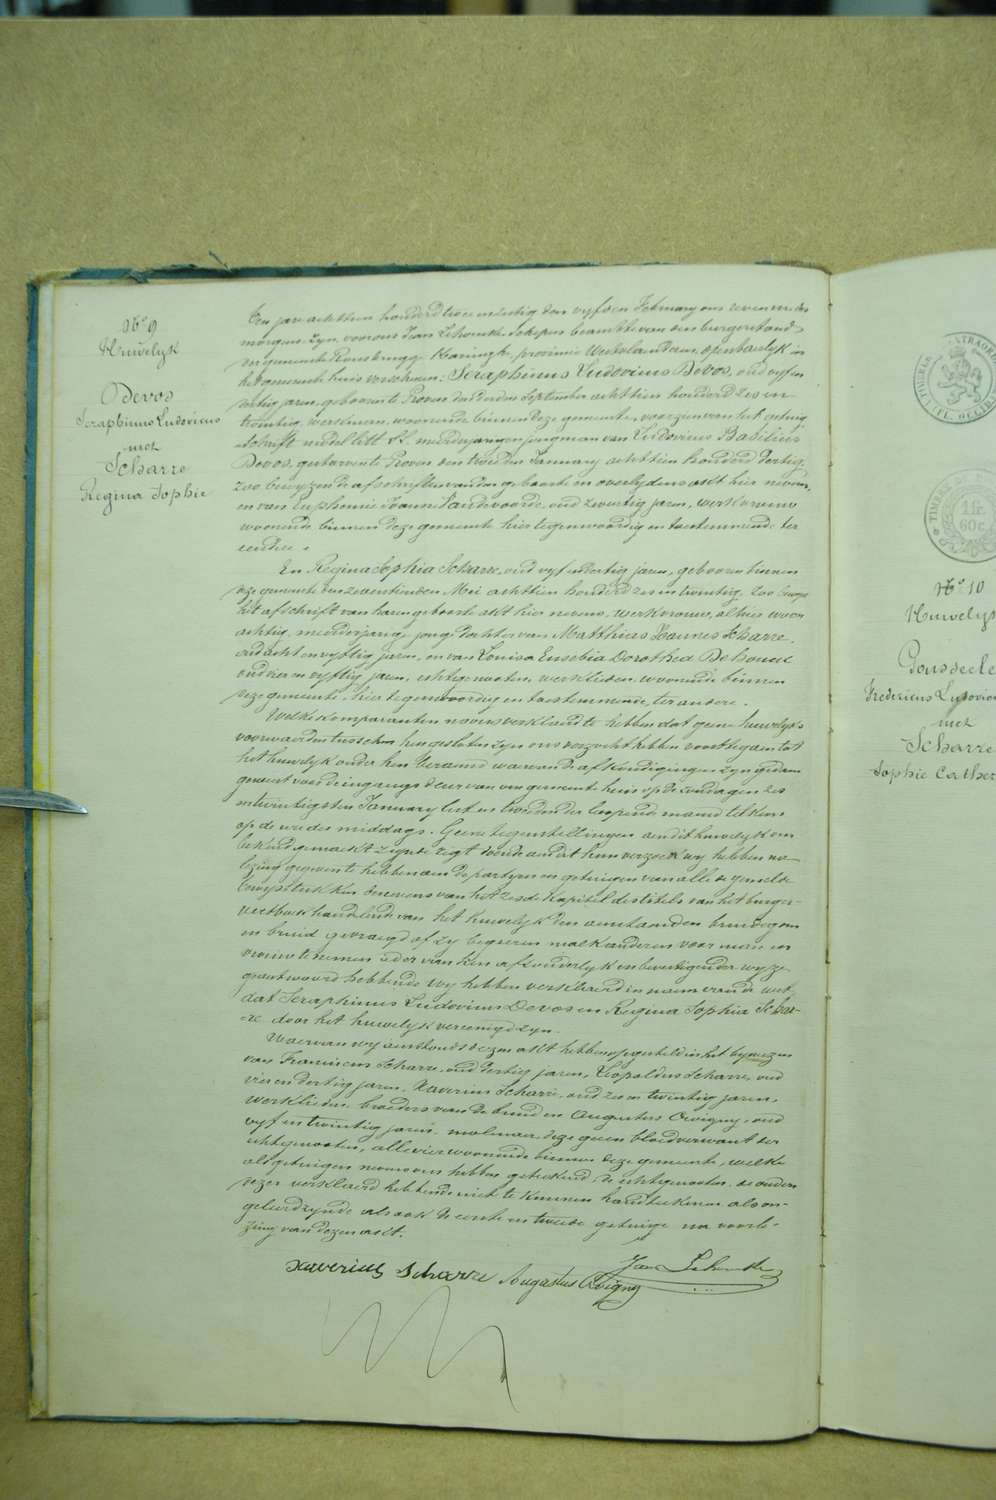 No 9
Huwelyk
Devos
Seraphinus Ludovicus
met
Scharre
Regina Sophie
Ten jare achttien honderd twee en sestig den vyfden February ons zeven ure des
morgens zyn, voor ons Jan Schepen beamte van den burgerstand
der gemeente Rousbrugge Haringhe, provincie Westvlaanderen, openbaerlyk in
het gemeente huis verschenen: Seraphinus Ludovicus Devos, oud vyf en
dertig jaren, geboren te Proven den derden September achttien honderd zes en
twintig, werkman, woonende binnen deze gemeente, voorzien van het getuig
schrift model litt. meerderjarigen jongman van Ludovicus Basilius
Devos, gestorven te Proven den tweeden January achttien honderd dertig,
zoo bewyzen de afschriften van den geboorte en overlydens akt hier nevens,
en van Euphemie Joanna Vandevoorde, oud jaren, werkvrouw
woonende binnen deze gemeente hier tegenwoordig en toestemmende ter
eendre.
En Regina Sophia Scharre, oud vyf en dertig jaren, geboren binnen
deze gemeente den zeventienden Mei achttien honderd zes en twintig, zoo bewyst
het afschrift van haren geboorte akt hier nevens, werkvrouw, alhier woon
achtig, meerderjarige jonge dochter van Matthias Joannes Scharre,
oud acht en vyftig jaren, en van Louisa Eusebia Dorothea Dehouck
oud vier en vyftig jaren, echtgenooten, werklieden, woonende binnen
deze gemeente, hier tegenwoordig en toestemmende, ter andere.
Welke komparanten na ons verklaerd te hebben dat geene huwelyks
voorwaerden tusschen hen gesloten zyn ons verzocht hebben voort te gaen tot
het huwelyk onder hen beraemd waervan de afkondigingen zyn gedaen
geweest voor de ingangs deur van ons gemeente huis op de zondagen zes
en twintigsten January lest en tweeden der loopende maend telkens
op de ure des middags. Geene tegenstellingen aen dit huwelyk ons
bekend gemaekt zynde regt doende aen dit hun verzoek wy hebben na
lezing gegeven te hebben aen de partyen en getuigen van alle de gemelde
bewysstukken benevens van het zesde kapitel des titels van het burger-
wetboek handelende van het huwelyk den aenstaenden bruidegom
en bruid gevraegd of zy begeeren malkanderen voor man en
vrouw te nemen ieder van hen afzonderlyk en bevestigender wyze
geantwoord hebbende wy hebben verklaerd in name van de wet
dat Seraphinus Ludovicus Devos en Regina Sophia Schar-
re door het huwelyk vereenigd zyn.
Waervan wy aenstonds dezen akt hebben opgesteld in het bywezen
van Franciscus Scharre, oud dertig jaren, Leopoldus Scharre, oud
vier en dertig jaren, Xaverius Scharre, oud zes en twintig jaren,
werklieden, broeders van de bruid en Augustus Ovigny, oud
vyf en twintig jaren, molenaer, deze geen bloedverwant der
echtgenooten, alle vier woonende binnen deze gemeente, welke
als getuigen nevens ons hebben geteekend, de echtgenooten, de ouders
dezer verklaerd hebbende niet te kunnen handteekenen als on-
geleerd zynde alsook de eerste en tweede getuige na voorle-
zing van dezen akt.
Xaverius Scharre Augustus Ovigny Jan
TIMBRE
1 fr.
60 c.
No 10
Huwelyk
Fredericus Ludovicus
met
Scharre
Sophie Cather